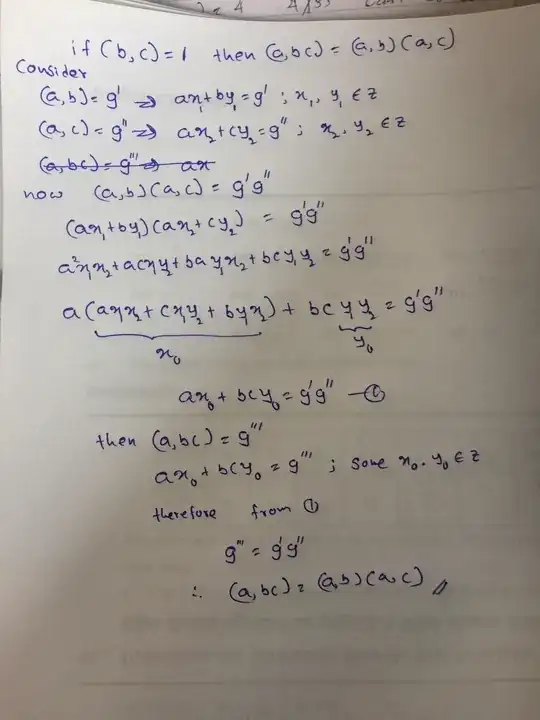 if (b,c)=1 then (a,bc) = (a,b)(a,c)
Consider
(a,b)=g' => ax₁+by₁=g' ; x₁, y₁ ∈ Z
(a,c)=g'' => ax₂+cy₂=g'' ; x₂, y₂ ∈ Z
(a,bc)=g''' => ax
now (a,b)(a,c) = g'g''
(ax₁+by₁)(ax₂+cy₂) = g'g''
a²x₁x₂+acx₁y₂+bay₁x₂+bcy₁y₂ = g'g''
a(ax₁x₂+cx₁y₂+by₁x₂)+bcy₁y₂ = g'g''
x₀ y₀
ax₀+bcy₀ = g'g'' —①
then (a,bc) = g'''
ax₀+bcy₀ = g''' ; some x₀, y₀ ∈ Z
therefore from ①
g''' = g'g''
∴ (a,bc) = (a,b)(a,c) //